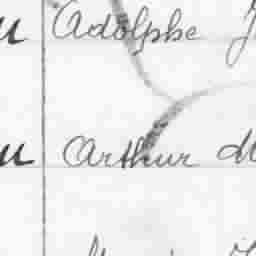 u Adolphe J
u Arthur M